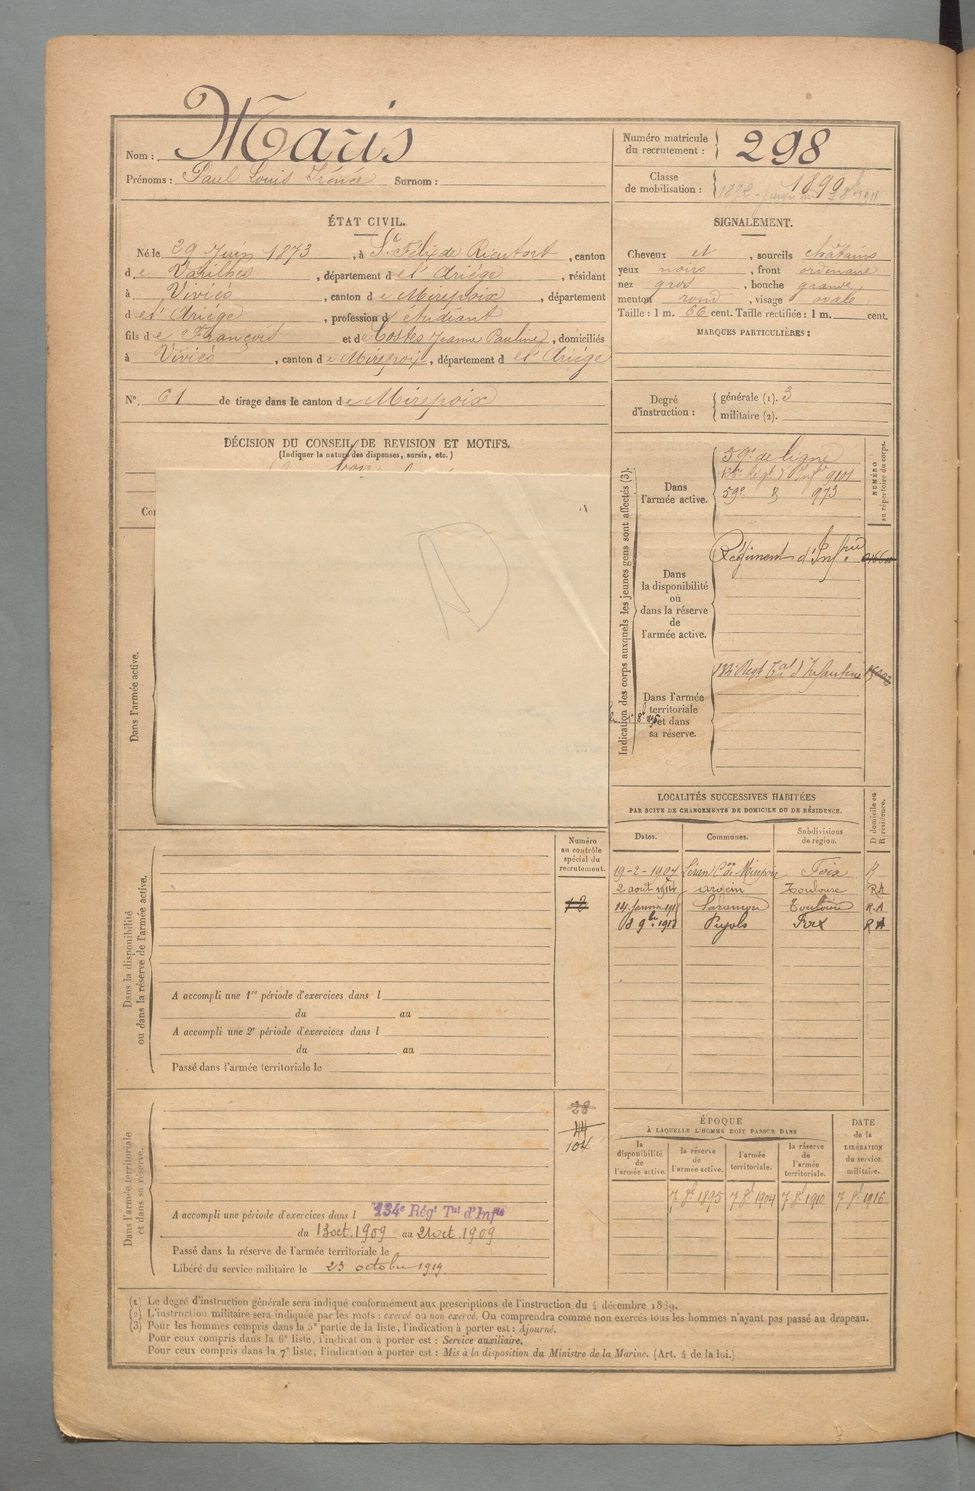 Nom : Maris
Prénoms : Paul Louis Irénée Surnom :
Numéro matricule du recrutement : 298
Classe de mobilisation : 1890
ÉTAT CIVIL.
Né le 29 Juin 1873, à St Félix de Rieutort, canton
de Varilhes, département de l'Ariège, résidant
à Viviés, canton de Mirepoix, département
de l'Ariège, profession d'étudiant
fils de François et de Costes Jeanne Pauline, domiciliés
à Viviés, canton de Mirepoix, département de l'Ariège
N° 61 de tirage dans le canton de Mirepoix
SIGNALEMENT.
Cheveux et, sourcils châtains
yeux noirs, front ordinaire
nez gros, bouche grande
menton rond, visage ovale
Taille : 1 m. 66 cent. Taille rectifiée : 1 m. cent.
MARQUES PARTICULIÈRES :
Degré d'instruction :
générale (1). 3
militaire (2).
DÉCISION DU CONSEIL DE REVISION ET MOTIFS.
(Indiquer la nature des dispenses, sursis, etc.)
bon
Dans l'armée active.
Indication des corps auxquels les jeunes gens sont affectés (3).
NUMÉRO au répertoire du corps.
Dans l'armée active.
59e de ligne
9101
59e 973
Dans la disponibilité ou dans la réserve de l'armée active.
Régiment d'Infrie
Dans l'armée territoriale et dans sa réserve.
Regt Tal d'Infanterie
LOCALITÉS SUCCESSIVES HABITÉES
PAR SUITE DE CHANGEMENTS DE DOMICILE OU DE RÉSIDENCE.
Dates. Communes. Subdivisions de région. D domicile ou R résidence.
19-2-1907 Léran Con de Mirepoix Foix R
2 août Toulouse RA
14 Janvier Toulouse R.A
18 9bre Pujols Foix RA
Dans la disponibilité ou dans la réserve de l'armée active.
Numéro au contrôle spécial du recrutement.
A accompli une 1re période d'exercices dans l
du au
A accompli une 2e période d'exercices dans l
du au
Passé dans l'armée territoriale le
Dans l'armée territoriale et dans sa réserve.
28
44
104
A accompli une période d'exercices dans l 134e Régt Tal d'Infie
du 13 oct. 1909 au 21 oct. 1909
Passé dans la réserve de l'armée territoriale le
Libéré du service militaire le 23 octobre 1919
ÉPOQUE
À LAQUELLE L'HOMME DOIT PASSER DANS
DATE de la LIBÉRATION du service militaire.
la disponibilité de l'armée active.
la réserve de l'armée active.
l'armée territoriale.
la réserve de l'armée territoriale.
7 8e 1895 7 8e 1904 7 8e 1910 7 8e 1916
(1) Le degré d'instruction générale sera indiqué conformément aux prescriptions de l'instruction du 4 décembre 1889.
(2) L'instruction militaire sera indiquée par les mots : exercé ou non exercé. On comprendra comme non exercés tous les hommes n'ayant pas passé au drapeau.
(3) Pour les hommes compris dans la 5e partie de la liste, l'indication à porter est : Ajourné.
Pour ceux compris dans la 6e liste, l'indication à porter est : Service auxiliaire.
Pour ceux compris dans la 7e liste, l'indication à porter est : Mis à la disposition du Ministre de la Marine. (Art. 4 de la loi.)